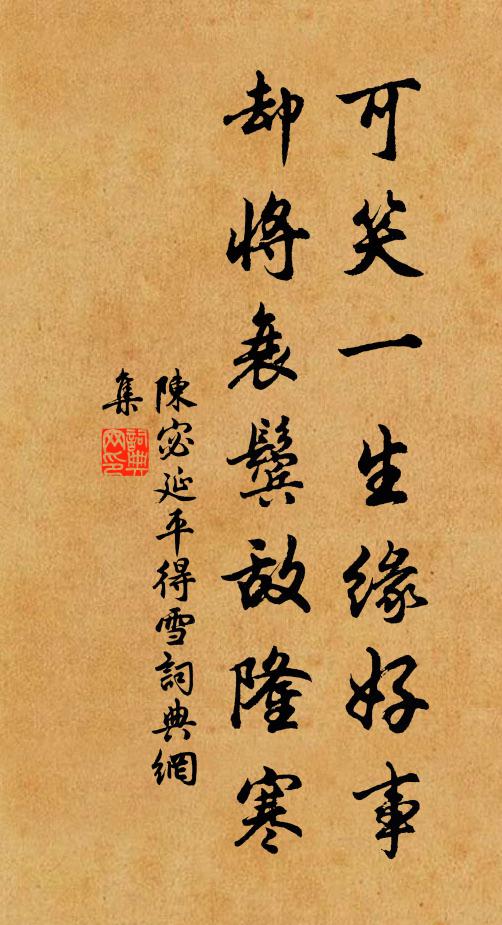 可笑一生缘好事
却将衰鬓敌隆寒
陳宓延平得雪詞典網
集
詞典網印